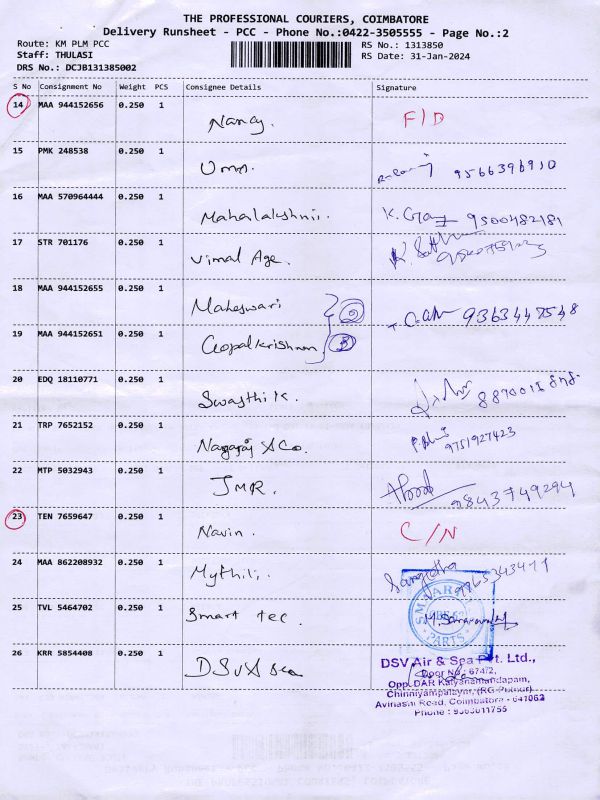 THE PROFESSIONAL COURIERS, COIMBATORE
Delivery Runsheet - PCC - Phone No.:0422-3505555 - Page No.:2
Route: KM PLM PCC
RS No.: 1313850
Staff: THULASI
RS Date: 31-Jan-2024
DRS No.: DCJB131385002
S No Consignment No Weight PCS Consignee Details Signature
14 MAA 944152656 0.250 1 Nancy. F/D
15 PMK 248538 0.250 1 Uma. 9566396910
16 MAA 570964444 0.250 1 Mahalakshmi. 9500482181
17 STR 701176 0.250 1 Vimal Age.
18 MAA 944152655 0.250 1 Maheswari 9363447548
19 MAA 944152651 0.250 1 Gopalkrishnan
20 EDQ 18110771 0.250 1 Swasthik.
21 TRP 7652152 0.250 1 Nagaraj & Co. 9751927423
22 MTP 5032943 0.250 1 JMR. 9843749294
23 TEN 7659647 0.250 1 Navin. C/N
24 MAA 862208932 0.250 1 Mythili. Sangeetha
25 TVL 5464702 0.250 1 Smart tec
PARTS
26 KRR 5854408 0.250 1 DSV A sea
DSV Air & Sea Pvt. Ltd.,
Door No.: 674/2,
Opp. DAR Kalyanamandapam,
Chinniyampalayam, (RG Pudur)
Avinashi Road, Coimbatore - 641062
Phone :